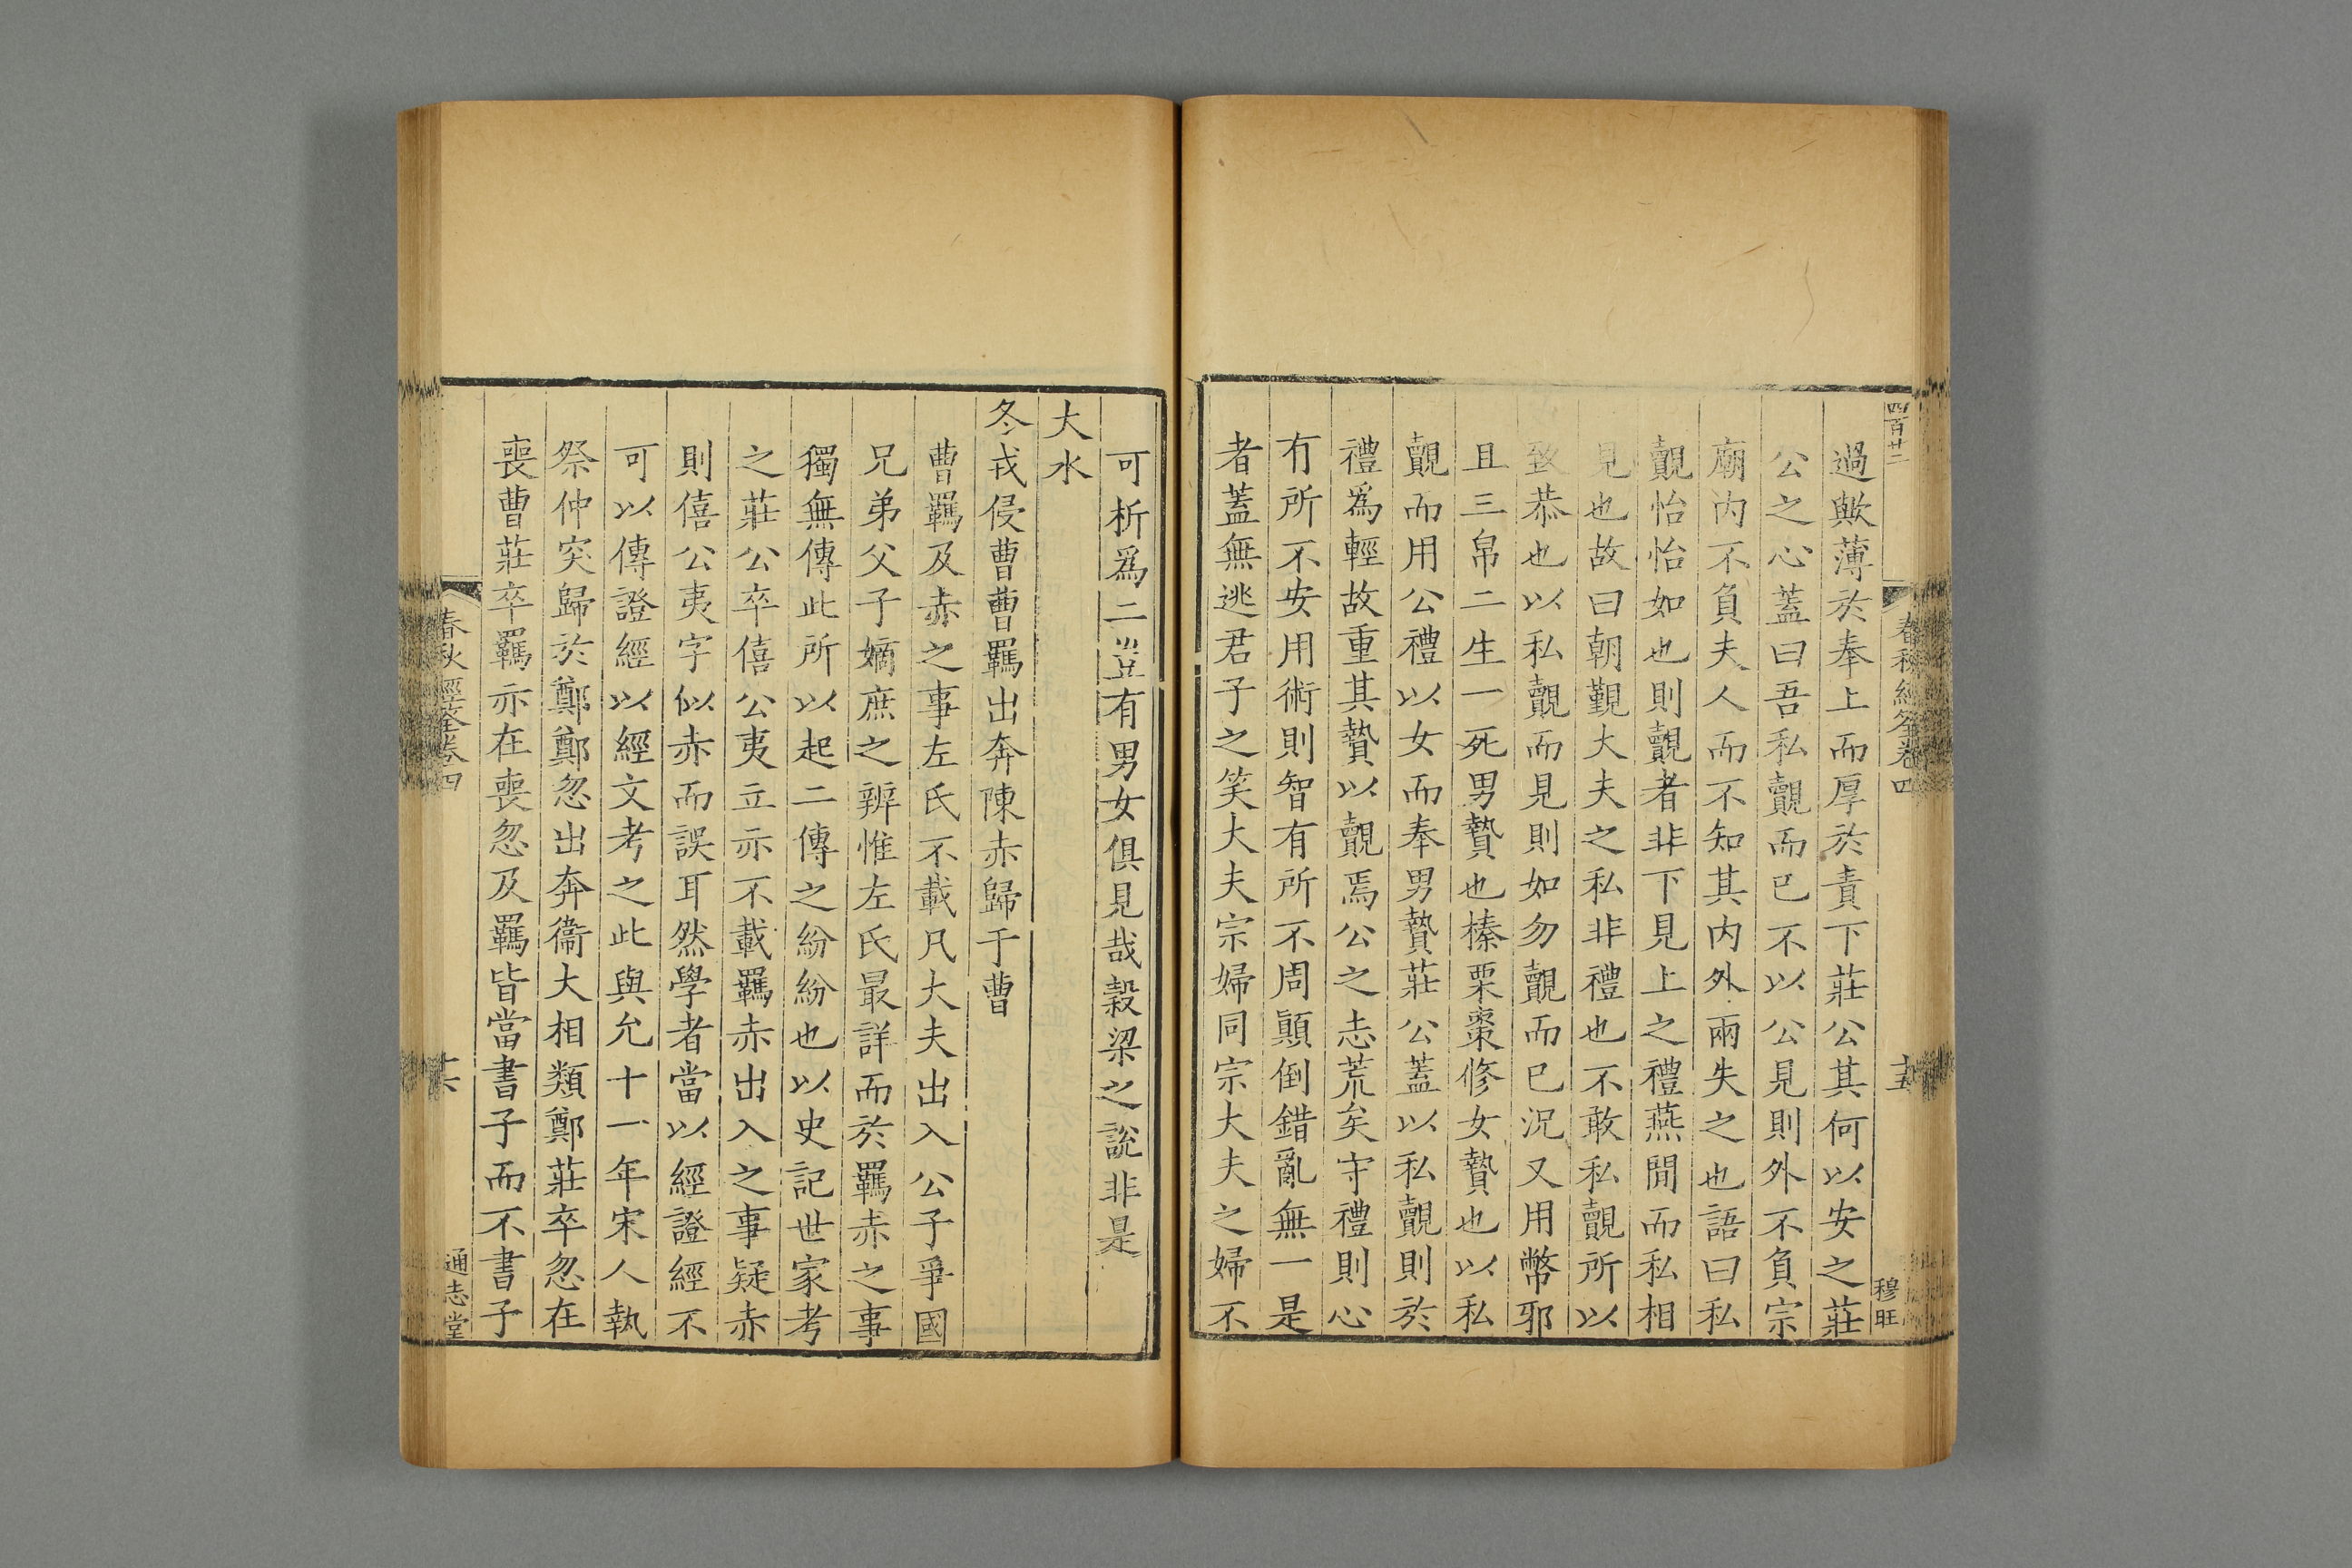 四百廿二
春秋經筌卷四
十五
穆旺
過歟薄於奉上而厚於責下莊公其何以安之莊
公之心蓋曰吾私覿而已不以公見則外不負宗
廟內不負夫人而不知其内外兩失之也語曰私
覿怡怡如也則覿者非下見上之禮燕閒而私相
見也故曰朝覲大夫之私非禮也不敢私覿所以
致恭也以私覿而見則如勿覿而已況又用幣邪
且三帛二生一死男贄也榛栗棗修女贄也以私
覿而用公禮以女而奉男贄莊公蓋以私覿則於
禮爲輕故重其贄以覿焉公之志荒矣守禮則心
有所不安用術則智有所不周顛倒錯亂無一是
者蓋無逃君子之笑大夫宗婦同宗大夫之婦不
可析爲二豈有男女俱見哉穀梁之說非是
大水
冬戎侵曹曹羈出奔陳赤歸于曹
曹羈及赤之事左氏不載凡大夫出入公子爭國
兄弟父子嫡庶之辨惟左氏最詳而於羈赤之事
獨無傳此所以起二傳之紛紛也以史記世家考
之莊公卒僖公夷立亦不載羈赤出入之事疑赤
則僖公夷字似赤而誤耳然學者當以經證經不
可以傳證經以經文考之此與允十一年宋人執
祭仲突歸於鄭鄭忽出奔衞大相類鄭莊卒忽在
喪曹莊卒羈亦在喪忽及羈皆當書子而不書子
春秋經筌卷四
十六
通志堂